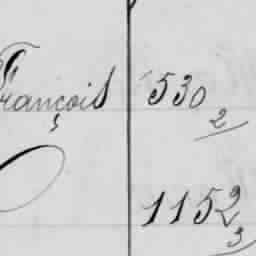 François 530
2
1152
3